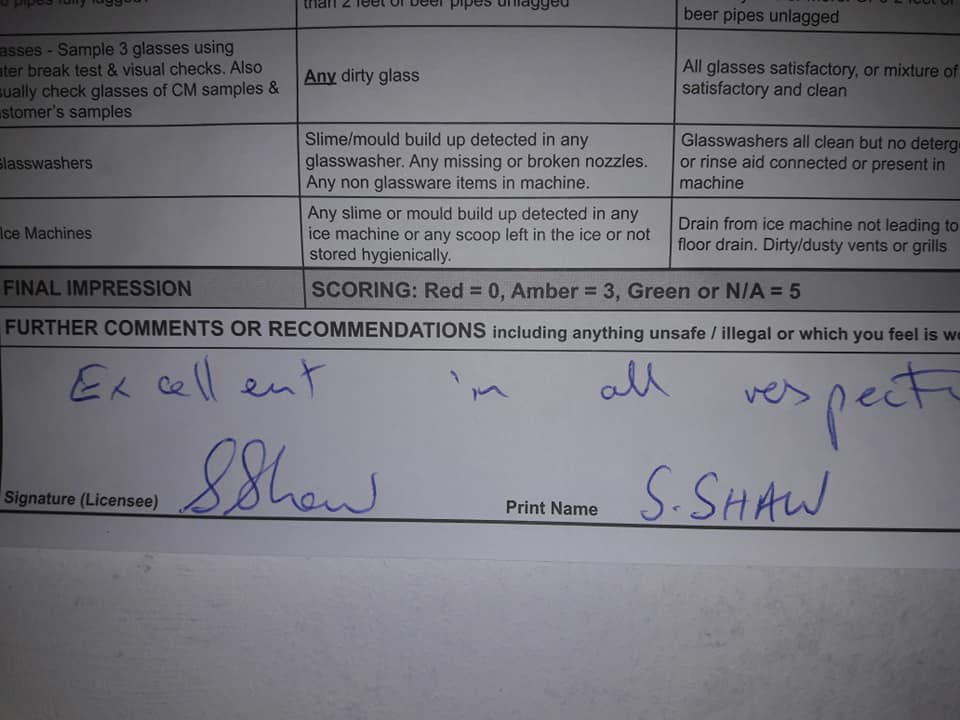 than 2 feet of beer pipes unlagged
beer pipes unlagged
asses - Sample 3 glasses using
ter break test & visual checks. Also
sually check glasses of CM samples &
stomer's samples
Any dirty glass
All glasses satisfactory, or mixture of
satisfactory and clean
Glasswashers
Slime/mould build up detected in any
glasswasher. Any missing or broken nozzles.
Any non glassware items in machine.
Glasswashers all clean but no deterg
or rinse aid connected or present in
machine
Ice Machines
Any slime or mould build up detected in any
ice machine or any scoop left in the ice or not
stored hygienically.
Drain from ice machine not leading to
floor drain. Dirty/dusty vents or grills
FINAL IMPRESSION
SCORING: Red = 0, Amber = 3, Green or N/A = 5
FURTHER COMMENTS OR RECOMMENDATIONS including anything unsafe / illegal or which you feel is wo
Excellent in all respect
Signature (Licensee) SShaw
Print Name S. SHAW